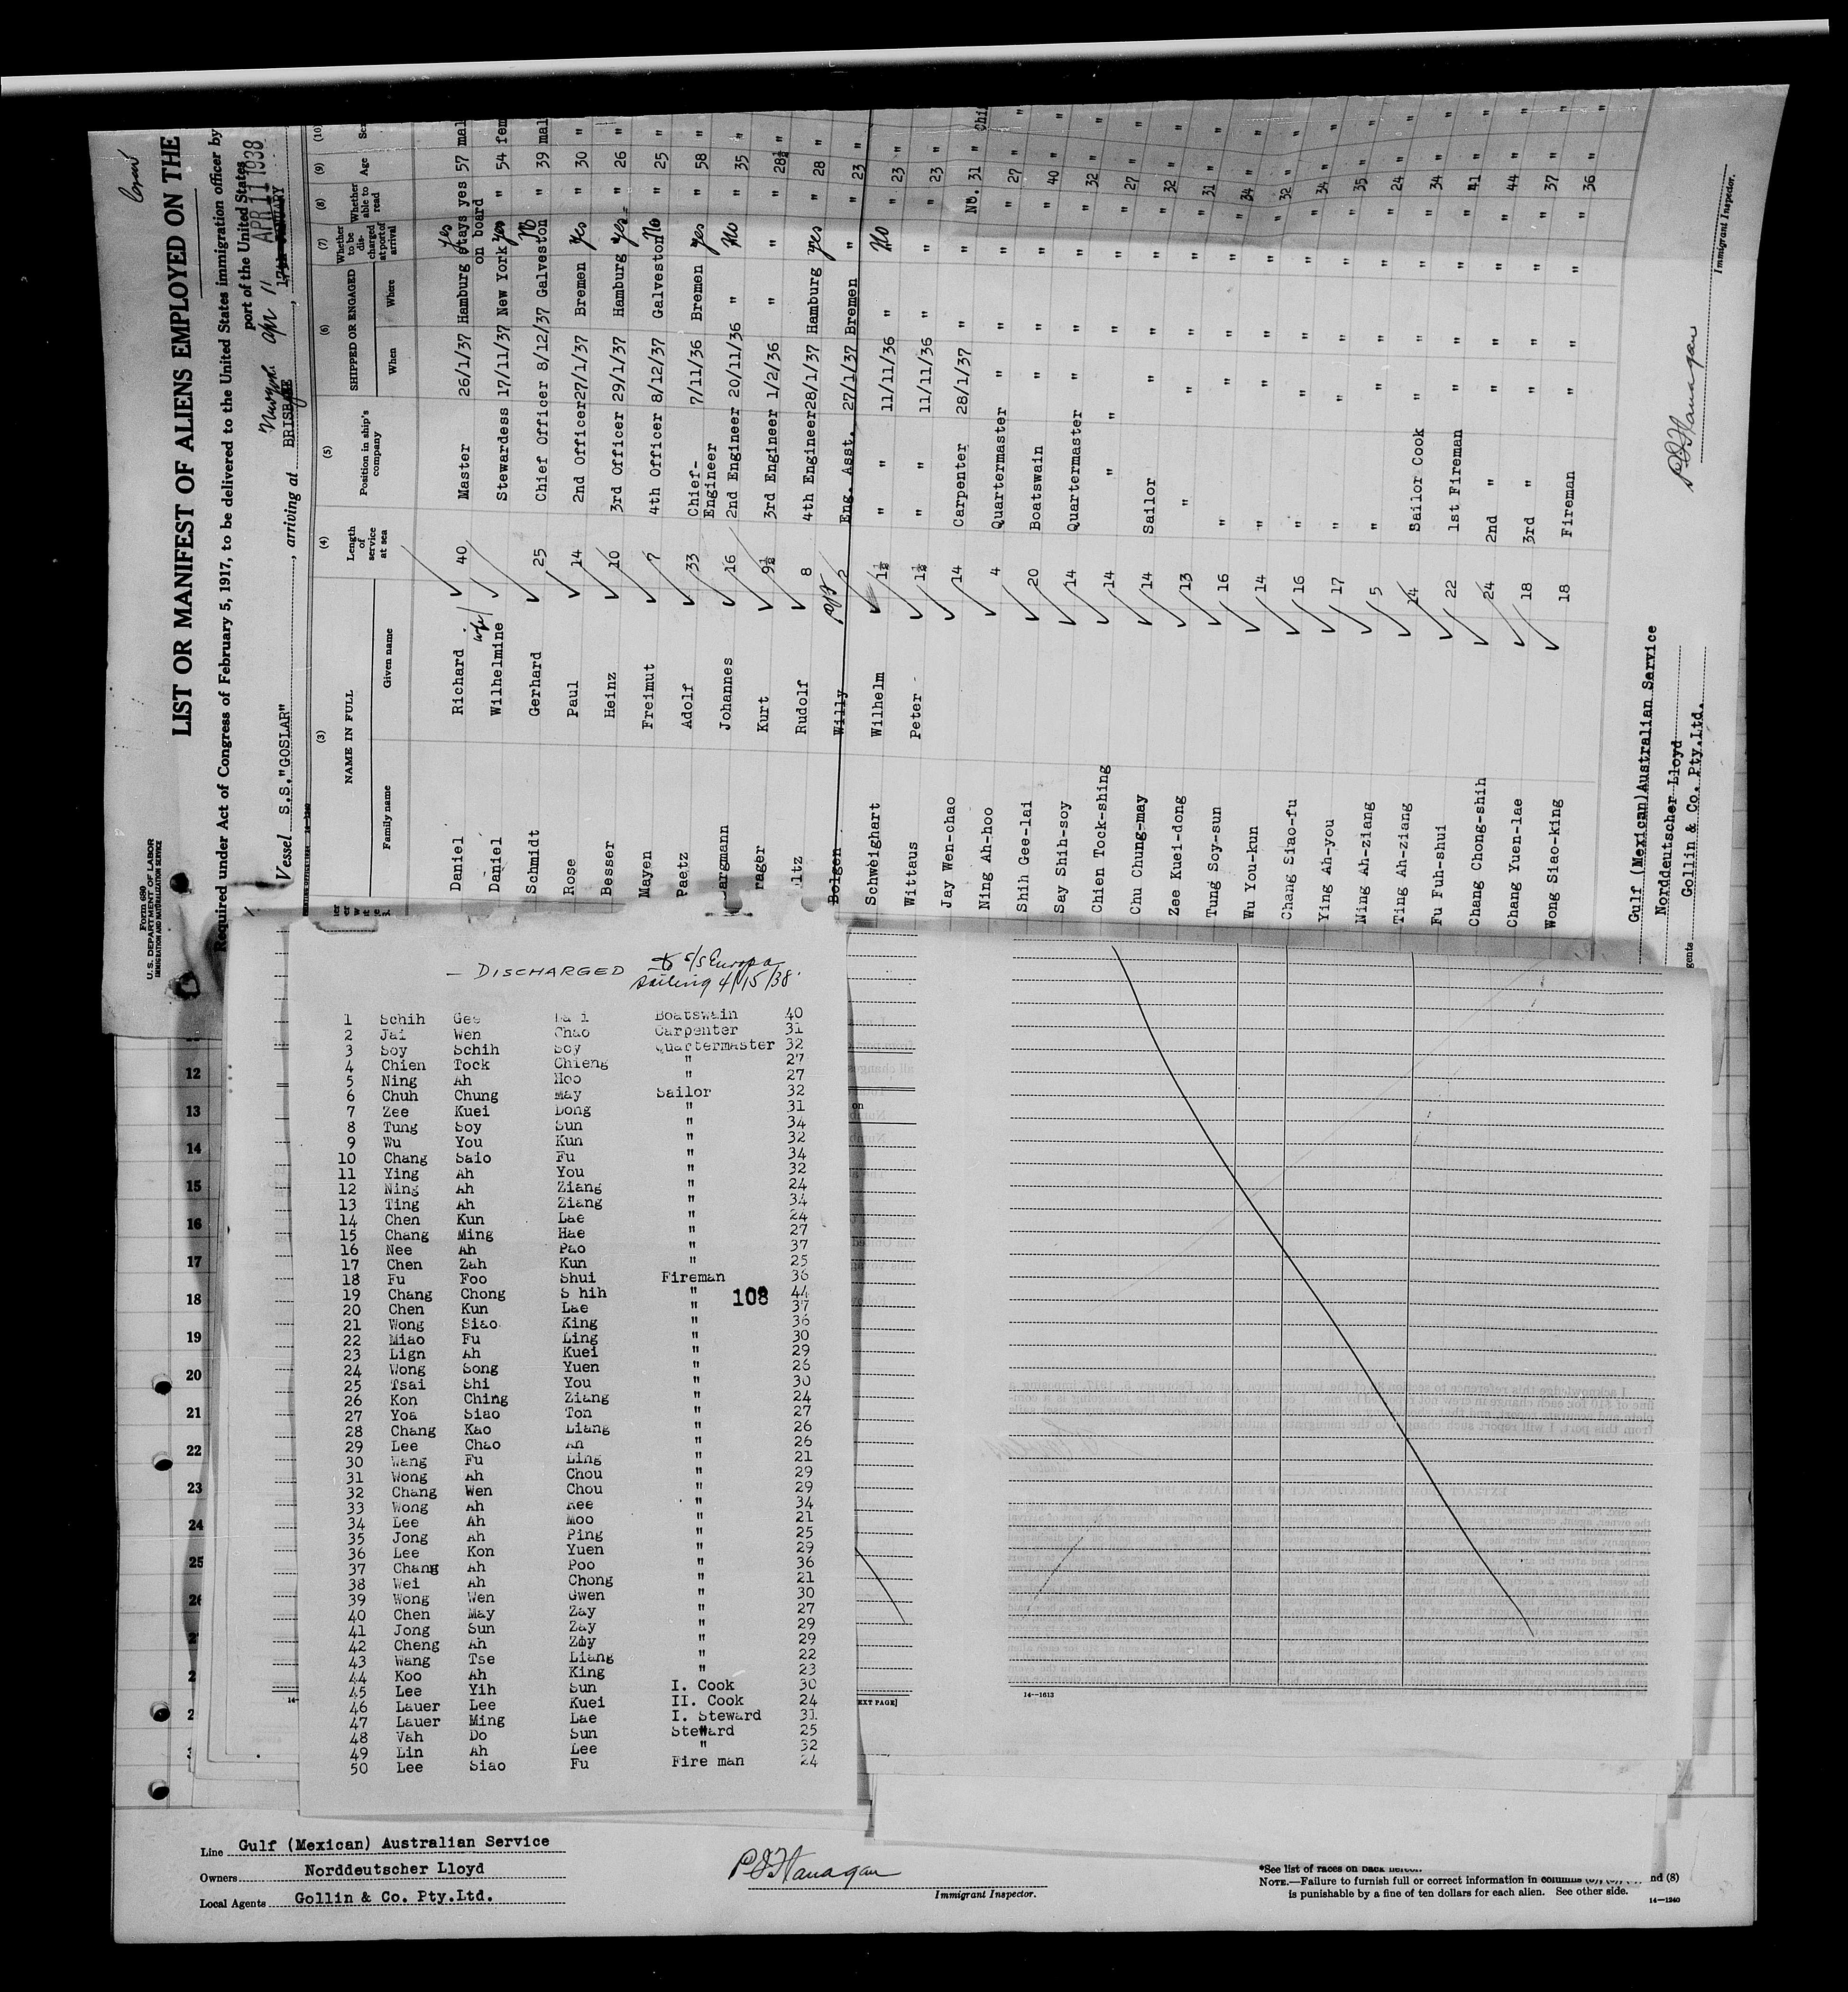 Crew
Form 680
U. S. DEPARTMENT OF LABOR
IMMIGRATION AND NATURALIZATION SERVICE
LIST OR MANIFEST OF ALIENS EMPLOYED ON THE
Required under Act of Congress of February 5, 1917, to be delivered to the United States immigration officer by
port of the United States
Vessel S.S."GOSLAR" , arriving at BRISBANE Apr 11 APR 11 1938
(3) (4) (5) (6) (7) (8) (9) (10)
NAME IN FULL Length of service at sea Position in ship's company SHIPPED OR ENGAGED Whether to be discharged at port of arrival Whether able to read Age
Family name Given name When Where
Daniel Richard 40 Master 26/1/37 Hamburg yes stays on board yes 57 mal
Daniel Wilhelmine wife Stewardess 17/11/37 New York yes " 54 fem
Schmidt Gerhard 25 Chief Officer 8/12/37 Galveston No " 39 mal
Rose Paul 14 2nd Officer 27/1/37 Bremen yes " 30 "
Besser Heinz 10 3rd Officer 29/1/37 Hamburg yes " 26 "
Mayen Freimut 7 4th Officer 8/12/37 Galveston No " 25 "
Paetz Adolf 33 Chief-Engineer 7/11/36 Bremen yes " 58 "
argmann Johannes 16 2nd Engineer 20/11/36 " No " 35 "
rager Kurt 9½ 3rd Engineer 1/2/36 " " " 28½ "
ltz Rudolf 8 4th Engineer 28/1/37 Hamburg yes " 28 "
Bolgen Willy 2 Eng. Asst. 27/1/37 Bremen " " 23 "
Schweighart Wilhelm 1½ " 11/11/36 " No " 23 "
Wittaus Peter 1½ " 11/11/36 " " " 23 "
Jay Wen-chao 14 Carpenter 28/1/37 " " No. 31 " Chi
Ning Ah-hoo 4 Quartermaster " " " " 27 " "
Shih Gee-lai 20 Boatswain " " " " 40 " "
Say Shih-soy 14 Quartermaster " " " " 32 " "
Chien Tock-shing 14 " " " " " 27 " "
Chu Chung-may 14 Sailor " " " " 32 " "
Zee Kuei-dong 13 " " " " " 31 " "
Tung Soy-sun 16 " " " " " 34 " "
Wu You-kun 14 " " " " " 32 " "
Chang Siao-fu 16 " " " " " 34 " "
Ying Ah-you 17 " " " " " 35 " "
Ning Ah-ziang 5 " " " " " 24 " "
Ting Ah-ziang 14 Sailor Cook " " " " 34 " "
Fu Fuh-shui 22 1st Fireman " " " " 41 " "
Chang Chong-shih 24 2nd " " " " " 44 " "
Chang Yuen-lae 18 3rd " " " " " 37 " "
Wong Siao-king 18 Fireman " " " " 36 " "
Gulf (Mexican) Australian Service
Norddeutscher Lloyd
Gollin & Co. Pty.Ltd.
P J Flanagan
Immigrant Inspector.
— DISCHARGED to s/s Europa
sailing 4/15/38
1 Schih Gee Lai Boatswain 40
2 Jai Wen Chao Carpenter 31
3 Soy Schih Soy Quartermaster 32
4 Chien Tock Chieng " 27
5 Ning Ah Hoo " 27
6 Chuh Chung May Sailor 32
7 Zee Kuei Dong " 31
8 Tung Soy Sun " 34
9 Wu You Kun " 32
10 Chang Saio Fu " 34
11 Ying Ah You " 32
12 Ning Ah Ziang " 24
13 Ting Ah Ziang " 34
14 Chen Kun Lae " 24
15 Chang Ming Hae " 27
16 Nee Ah Pao " 37
17 Chen Zah Kun " 25
18 Fu Foo Shui Fireman 36
19 Chang Chong S hih " 44
108
20 Chen Kun Lae " 37
21 Wong Siao King " 36
22 Miao Fu Ling " 30
23 Lign Ah Kuei " 29
24 Wong Song Yuen " 26
25 Tsai Shi You " 30
26 Kon Ching Ziang " 24
27 Yoa Siao Ton " 27
28 Chang Kao Liang " 26
29 Lee Chao An " 26
30 Wang Fu Ling " 21
31 Wong Ah Chou " 29
32 Chang Wen Chou " 29
33 Wong Ah Kee " 34
34 Lee Ah Moo " 21
35 Jong Ah Ping " 25
36 Lee Kon Yuen " 29
37 Chang Ah Poo " 36
38 Wei Ah Chong " 21
39 Wong Wen Gwen " 30
40 Chen May Zay " 27
41 Jong Sun Zay " 29
42 Cheng Ah Zoy " 29
43 Wang Tse Liang " 22
44 Koo Ah King " 23
45 Lee Yih Sun I. Cook 30
46 Lauer Lee Kuei II. Cook 24
47 Lauer Ming Lae I. Steward 31
48 Vah Do Sun Steward 25
49 Lin Ah Lee " 32
50 Lee Siao Fu Fire man 24
12
13
14
15
16
17
18
19
20
21
22
23
24
25
14—1613
EXT PAGE]
Line Gulf (Mexican) Australian Service
Owners Norddeutscher Lloyd
Local Agents Gollin & Co. Pty.Ltd.
P J Flanagan
Immigrant Inspector.
*See list of races on back hereof.
NOTE.—Failure to furnish full or correct information in columns nd (8)
is punishable by a fine of ten dollars for each alien. See other side.
14—1240